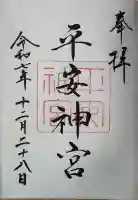 奉拝
平安神宮
令和七年十二月二十八日